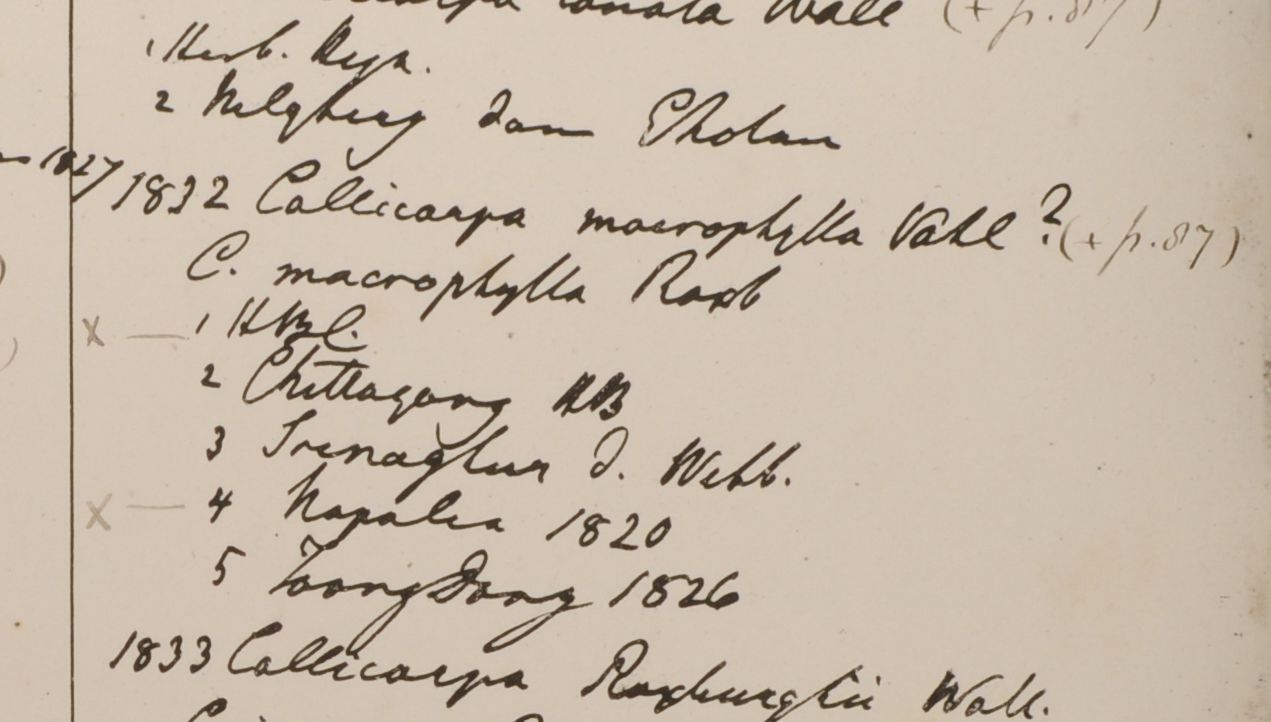 lanata Wall (+ p. 87)
1 Herb. Heyn.
2 Nilghery dom
1827
1832 Callicarpa macrophylla Vahl? (+ p. 87)
C. macrophylla Roxb
x — 1 HBC.
2 Chittagong HB
3 Srenaghur d. Webb.
x — 4 Napalia 1820
5 Toong Dong 1826
1833 Callicarpa Roxburghii Wall.